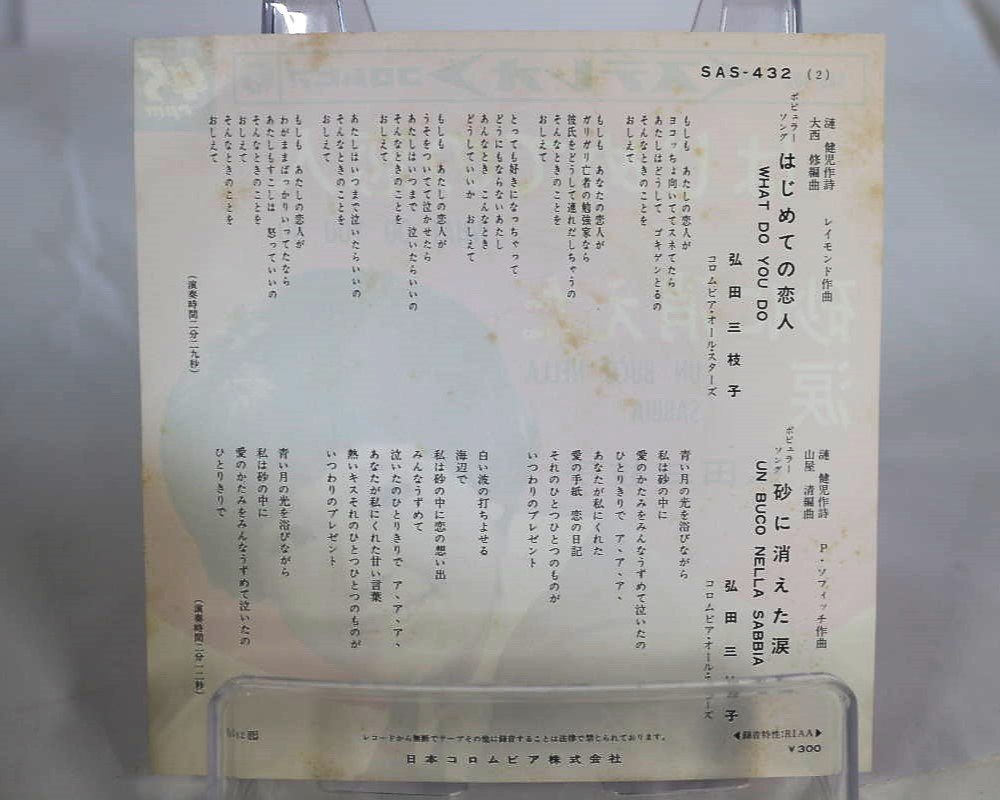 SAS-432 (2)
漣 健児作詩 レイモンド作曲
大西 修編曲
ポピュラーソング
はじめての恋人
WHAT DO YOU DO
弘田三枝子
コロムビア・オール・スターズ
もしも あたしの恋人が
ヨコっちょ向いててスネてたら
あたしはどうして ゴキゲンとるの
そんなときのことを
おしえて
もしも あなたの恋人が
ガリガリ亡者の勉強家なら
彼氏をどうして連れだしちゃうの
そんなときのことを
おしえて
とっても好きになっちゃって
どうにもならないあたし
あんなとき こんなとき
どうしていいか おしえて
もしも あたしの恋人が
うそをついてて泣かせたら
あたしはいつまで 泣いたらいいの
そんなときのことを
おしえて
あたしはいつまで泣いたらいいの
そんなときのことを
おしえて
もしも あたしの恋人が
わがままばっかりいってたなら
あたしもすこしは 怒っていいの
そんなときのことを
そんなときのことを
おしえて
(演奏時間二分二九秒)
漣 健児作詩 P・ソフィッチ作曲
山屋 清編曲
ポピュラーソング
砂に消えた涙
UN BUCO NELLA SABBIA
弘田三枝子
コロムビア・オール・スターズ
青い月の光を浴びながら
私は砂の中に
愛のかたみをみんなうずめて泣いたの
ひとりきりで ア、ア、ア、
あなたが私にくれた
愛の手紙 恋の日記
それのひとつひとつのものが
いつわりのプレゼント
白い波の打ちよせる
海辺で
私は砂の中に恋の想い出
みんなうずめて
泣いたのひとりきりで ア、ア、ア、
あなたが私にくれた甘い言葉
熱いキスそれのひとつひとつのものが
いつわりのプレゼント
青い月の光を浴びながら
私は砂の中に
愛のかたみをみんなうずめて泣いたの
ひとりきりで
(演奏時間二分一二秒)
◀録音特性:RIAA▶
¥300
レコードから無断でテープその他に録音することは法律で禁じられております。
日本コロムビア株式会社